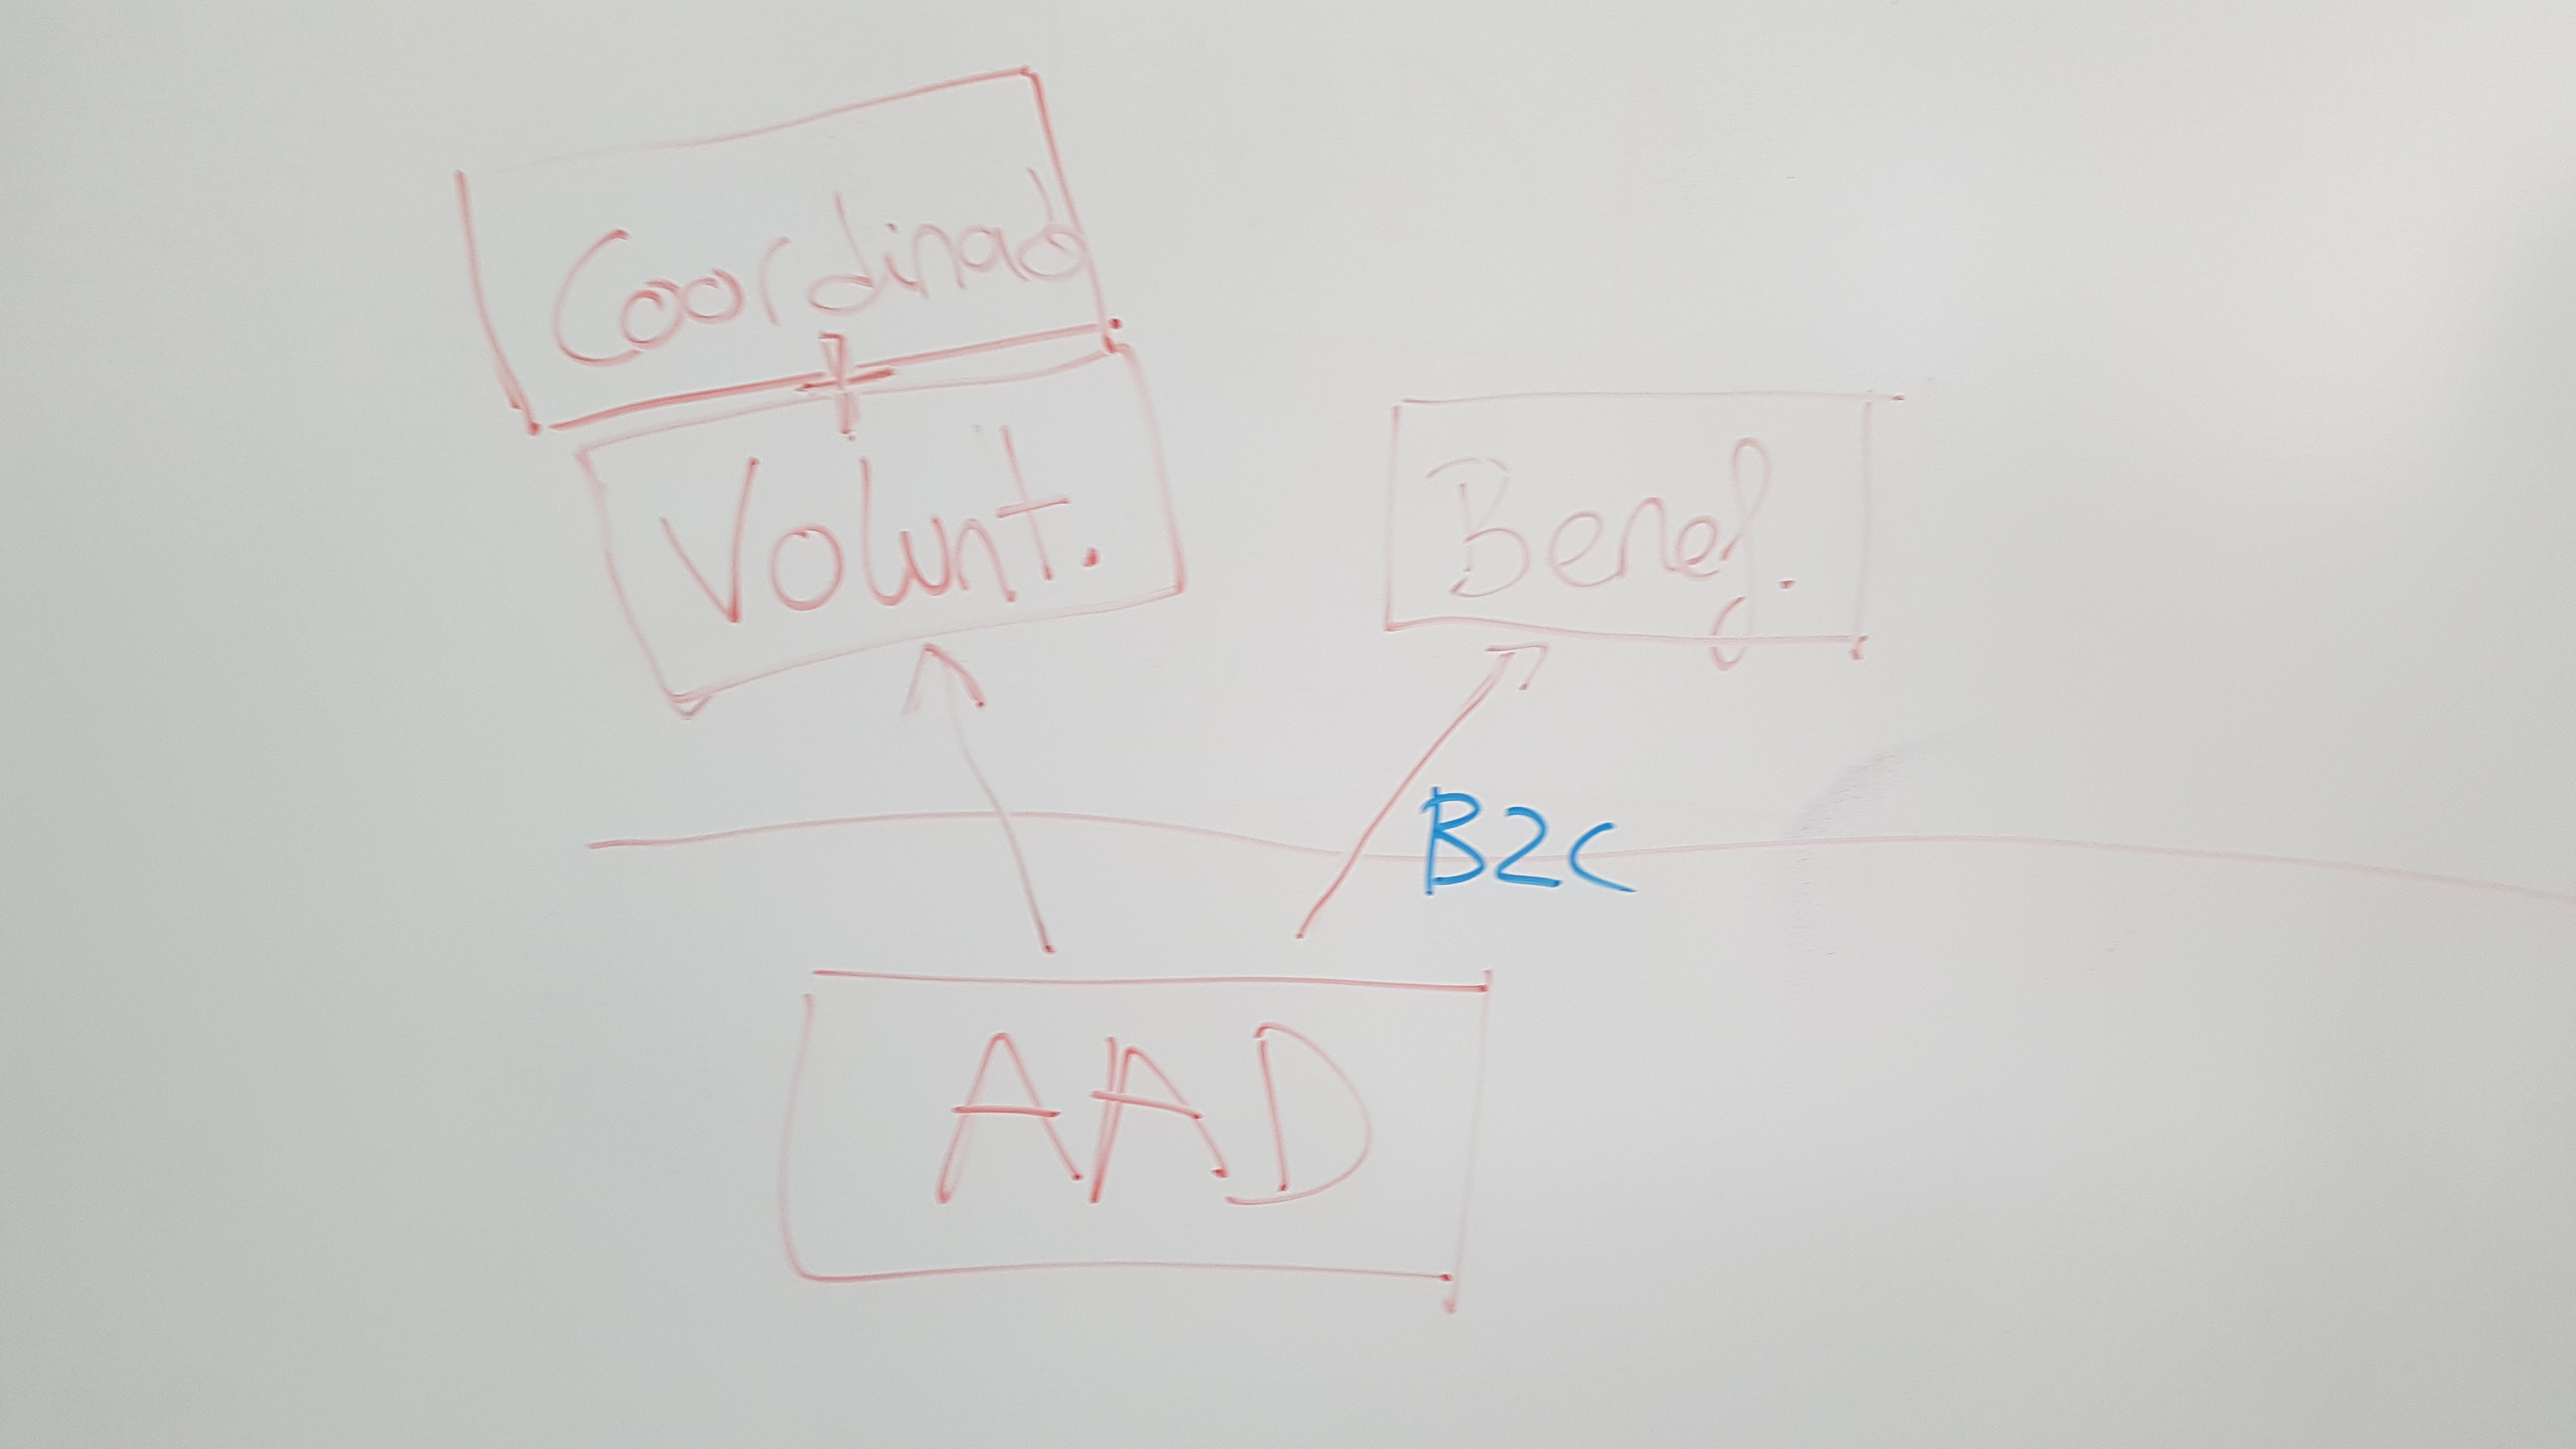 Coordinad
Volunt.
Benef.
B2C
AAD